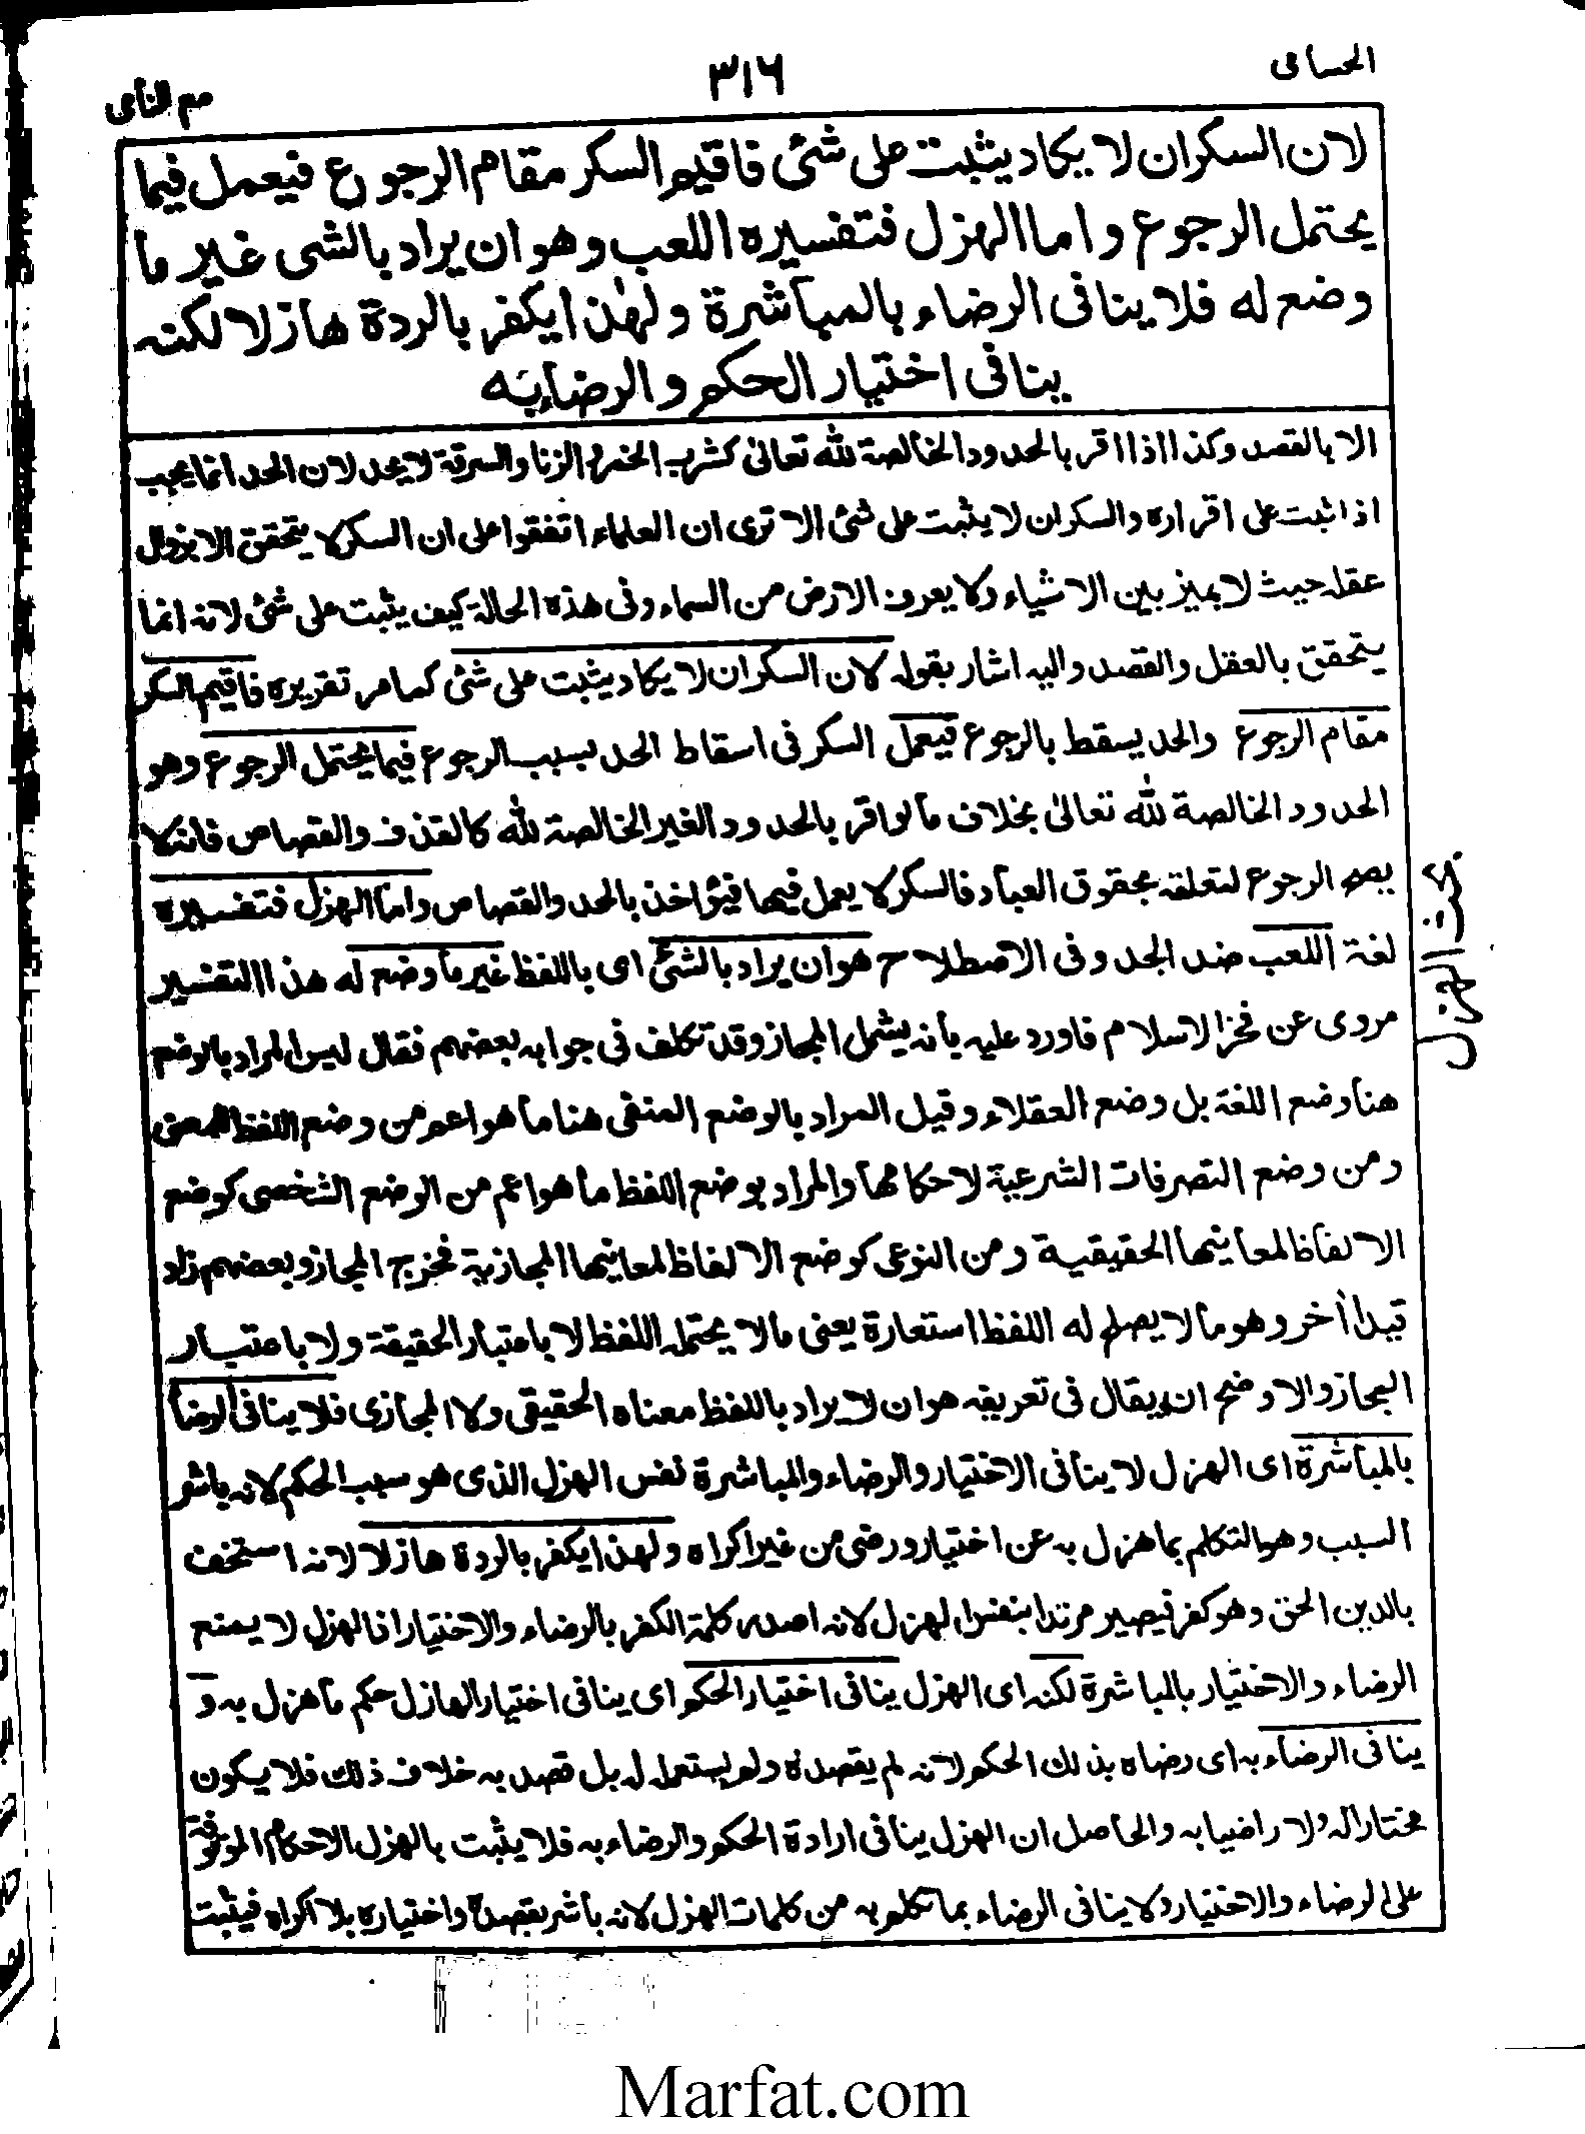 الحسامى
٣١٦
مع النامى
لان السكران لا يكاد يثبت على شئ فاقيم السكر مقام الرجوع فيعمل فيما
يحتمل الرجوع واما الهزل فتفسيره اللعب وهو ان يراد بالشى غير ما
وضع له فلا ينافى الرضاء بالمباشرة ولهذا يكفر بالردة هازلا لكنه
ينافى اختيار الحكم والرضاء به
الا بالقصد وكذا اذا اقر بالحدود الخالصة لله تعالىٰ كشرب الخمر والزنا والسرقة لا يحد لان الحد انما يجب
اذا ثبت على اقراره والسكران لا يثبت على شئ الا ترى ان العلماء اتفقوا على ان السكر لا يتحقق الا بزوال
عقله حيث لا يميز بين الاشياء ولا يعرف الارض من السماء وفى هذه الحالة كيف يثبت على شئ لانه انما
يتحقق بالعقل والقصد واليه اشار بقوله لان السكران لا يكاد يثبت على شئ كما مر تقريره فاقيم السكر
مقام الرجوع والحد يسقط بالرجوع فيعمل السكر فى اسقاط الحد بسبب الرجوع فيما يحتمل الرجوع وهو
الحدود الخالصة لله تعالىٰ بخلاف ما لو اقر بالحدود الغير الخالصة لله كالقذف والقصاص فانه لا
يصح الرجوع لتعلقه بحقوق العباد فالسكر لا يعمل فيها فيؤاخذ بالحد والقصاص واما الهزل فتفسيره
لغة اللعب ضد الجد وفى الاصطلاح هو ان يراد بالشئ اى باللفظ غير ما وضع له هذا التفسير
مروى عن فخر الاسلام فاورد عليه بانه يشمل المجاز وقد تكلف فى جوابه بعضهم فقال ليس المراد بالوضع
هنا وضع اللغة بل وضع العقلاء وقيل المراد بالوضع المنفى هنا ما هو اعم من وضع اللفظ للمعنى
ومن وضع التصرفات الشرعية لاحكامها والمراد بوضع اللفظ ما هو اعم من الوضع الشخصى كوضع
الالفاظ لمعانيها الحقيقية ومن النوعى كوضع الالفاظ لمعانيها المجازية فخرج المجاز وبعضهم زاد
قيدا أخر وهو ما لا يصلح له اللفظ استعارة يعنى ما لا يحتمله اللفظ لا باعتبار الحقيقة ولا باعتبار
المجاز والاوضح ان يقال فى تعريفه هو ان لا يراد باللفظ معناه الحقيقى ولا المجازى فلا ينافى الرضا
بالمباشرة اى الهزل لا ينافى الاختيار والرضاء والمباشرة نفس الهزل الذى هو سبب الحكم لانه باشر
السبب وهو التكلم بما هزل به عن اختيار ورضى من غير اكراه ولهذا يكفر بالردة هازلا لانه استخف
بالدين الحق وهو كفر فيصير مرتدا بنفس الهزل لانه اصدر كلمة الكفر بالرضاء والاختيار فالهزل لا يمنع
الرضاء والاختيار بالمباشرة لكنه اى الهزل ينافى اختيار الحكم اى ينافى اختيار الهازل حكم ما هزل به و
ينافى الرضاء به اى رضاه بذلك الحكم لانه لم يقصده ولم يستعمل له بل قصد به خلاف ذلك فلا يكون
مختارا له ولا راضيا به والحاصل ان الهزل ينافى ارادة الحكم والرضاء به فلا يثبت بالهزل الاحكام الموقوفة
على الرضاء والاختيار ولا ينافى الرضاء بما تكلم به من كلمات الهزل لانه باشر بقصده واختياره بلا اكراه فيثبت
بحث الهزل
Marfat.com